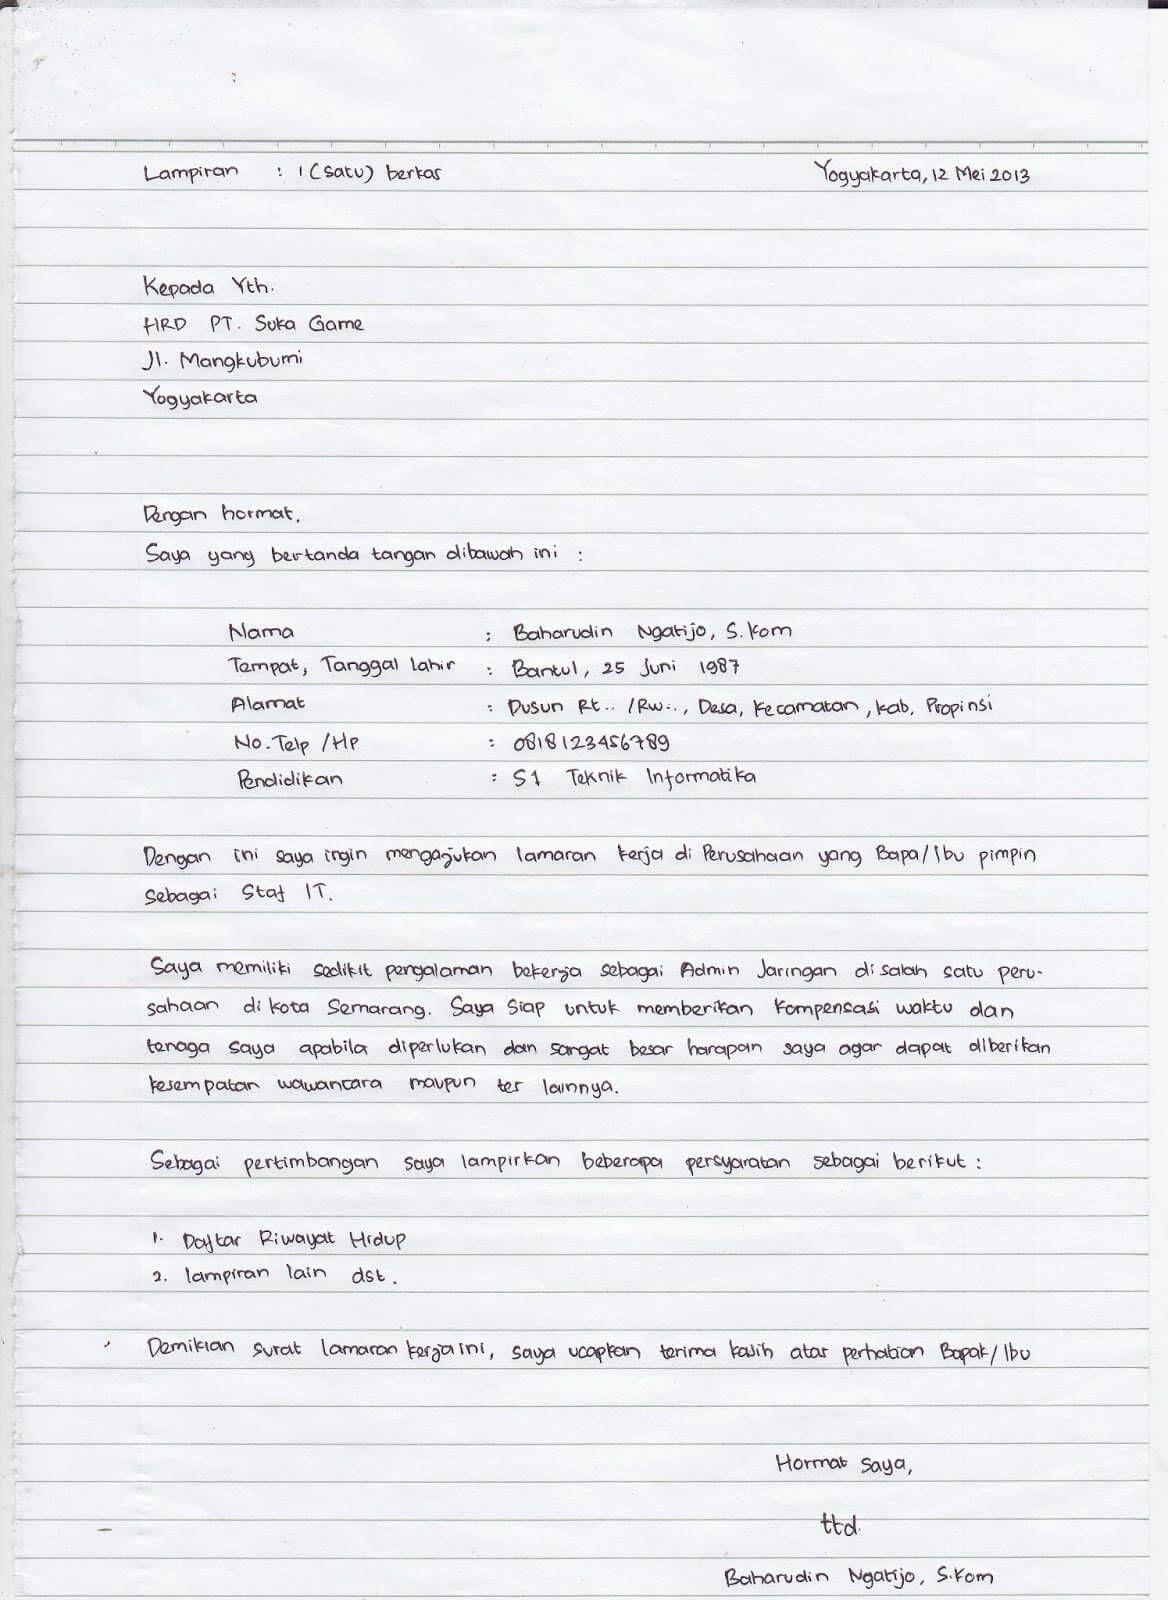 Lampiran : 1 (satu) berkas Yogyakarta, 12 Mei 2013
Kepada Yth.
HRD PT. Suka Game
Jl. Mangkubumi
Yogyakarta
Dengan hormat,
Saya yang bertanda tangan dibawah ini :
Nama : Baharudin Ngatijo, S.Kom
Tempat, Tanggal lahir : Bantul, 25 Juni 1987
Alamat : Dusun Rt.. /Rw.., Desa, Kecamatan, Kab, Propinsi
No. Telp /Hp : 0818123456789
Pendidikan : S1 Teknik Informatika
Dengan ini saya ingin mengajukan lamaran kerja di Perusahaan yang Bapa/Ibu pimpin
sebagai Staf IT.
Saya memiliki sedikit pengalaman bekerja sebagai Admin Jaringan di salah satu peru-
sahaan di kota Semarang. Saya siap untuk memberikan kompensasi waktu dan
tenaga saya apabila diperlukan dan sangat besar harapan saya agar dapat diberikan
kesempatan wawancara maupun tes lainnya.
Sebagai pertimbangan saya lampirkan beberapa persyaratan sebagai berikut :
1. Daftar Riwayat Hidup
2. lampiran lain dst.
Demikian surat lamaran kerja ini, saya ucapkan terima kasih atas perhatian Bapak/Ibu
Hormat saya,
ttd.
Baharudin Ngatijo, S.Kom